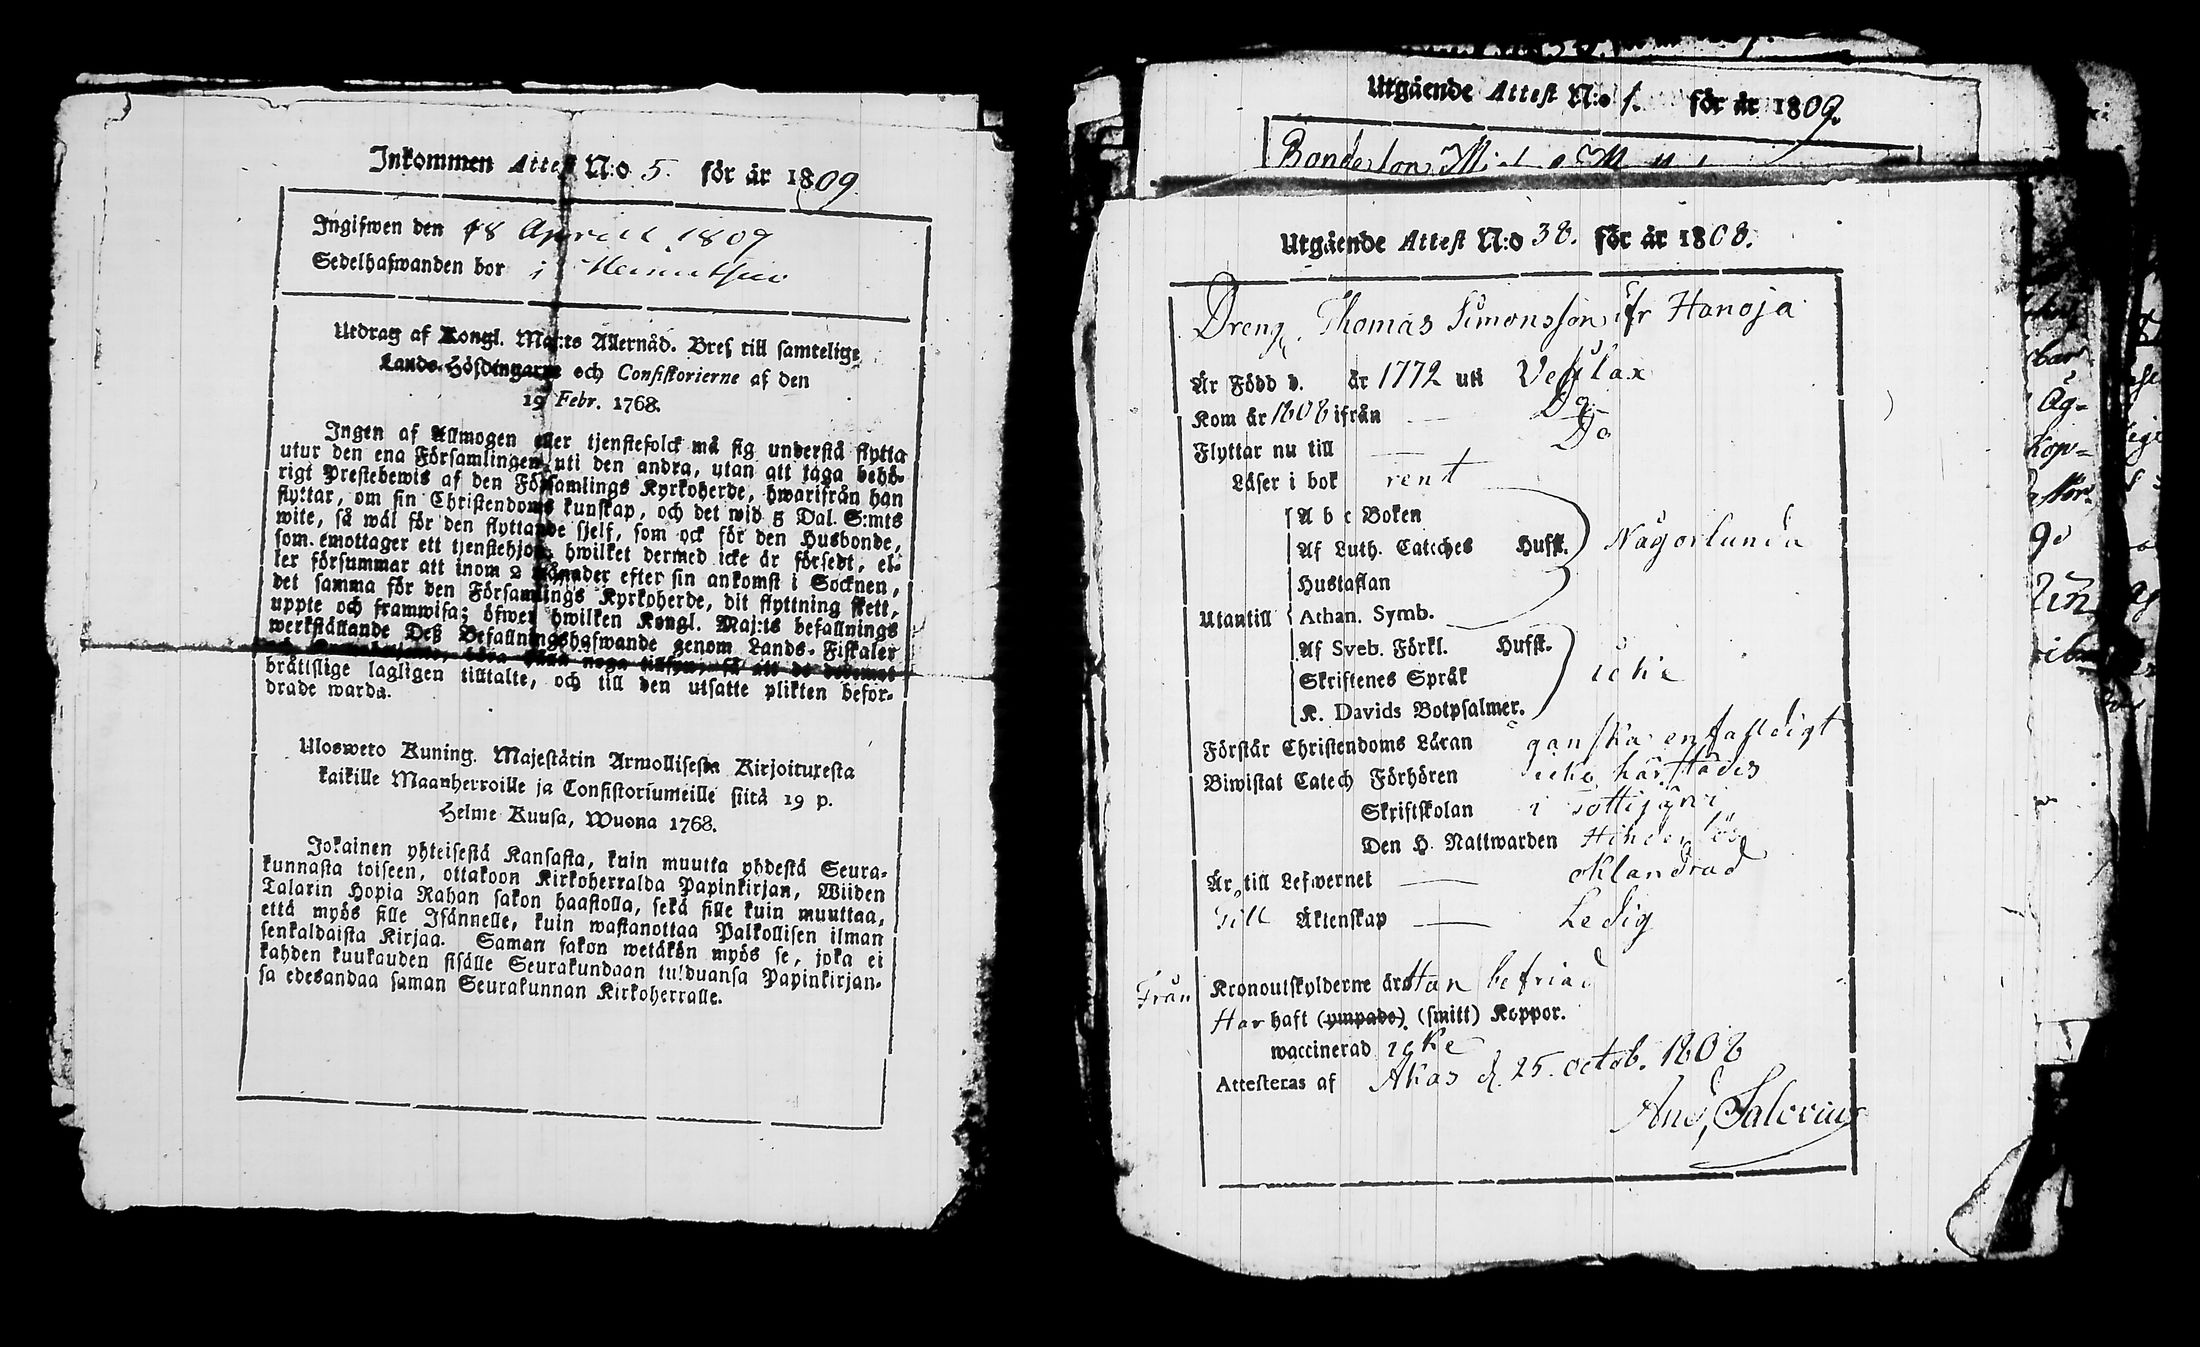 Inkommen Attest N:o 5. för år 1809
Ingifwen den 18 Aprill 1809
Sedelhafwanden bor i
Utdrag af Kongl. Maj:ts Allernåd. Bref till samtelige
Lands-Höfdingarne och Consistorierne af den
19 Febr. 1768.
Ingen af Allmogen eller tjenstefolck må sig understå flytta
utur den ena Församlingen uti den andra, utan att taga behö-
rigt Prestebewis af den Församlings Kyrkoherde, hwarifrån han
flyttar, om sin Christendoms kunskap, och det wid 5 Dal. S:mts
wite, så wäl för den flyttande sjelf, som ock för den Husbonde,
som emottager ett tjenstehjon, hwilket dermed icke är försedt, el-
ler försummar att inom 2 Månader efter sin ankomst i Socknen,
det samma för den Församlings Kyrkoherde, dit flyttning skett,
uppte och framwisa; öfwer hwilken Kongl. Maj:ts befallnings
werkställande Deß Befallningshafwande genom Lands-Fiskaler
noga så att de
bråttslige lagligen tilltalte, och till den utsatte plikten befor-
drade warda.
Ulosweto Kuning. Majestätin Armollisesta Kirjoituxesta
kaikille Maanherroille ja Consistoriumeille siitä 19 p.
Helme Kuusa, Wuona 1768.
Jokainen yhteisestä Kansasta, kuin muutta yhdestä Seura-
kunnasta toiseen, ottakoon Kirkoherralda Papinkirjan, Wiiden
Talarin Hopia Rahan sakon haastolla, sekä sille kuin muuttaa,
että myös sille Isännelle, kuin wastanottaa Palkollisen ilman
senkaldaista Kirjaa. Saman sakon wetäkön myös se, joka ei
kahden kuukauden sisälle Seurakundaan tulduansa Papinkirjan-
sa edesandaa saman Seurakunnan Kirkoherralle.
Utgående Attest N:o 1. för år 1809.
Bondeson
Utgående Attest N:o 38. för år 1808.
Dreng Thomas Simonsson ifr Hanoja
Är Född d. år 1772 uti Vessilax
Kom år 1808 ifrån Do
Flyttar nu till Do
Läser i bok rent
A b c Boken
Af Luth. Catches Hufst. Någorlunda
Hustaflan
Utantill Athan. Symb.
Af Sveb. Förkl. Hufst.
Skriftenes Språk icke
K. Davids Botpsalmer.
Förstår Christendoms Läran ganska enfaldigt
Biwistat Catech Förhören icke härstädes
Skriftskolan i Tottijärvi
Den H. Nattwarden Hinderlös
Är till Lefwernet oklandrad
Till Äktenskap Ledig
Från Kronoutskylderne är Han befriad
Har haft (ympade). (smitt) Koppor.
waccinerad icke
Attesteras af Akas d. 25. octob. 1808
And, Salovius